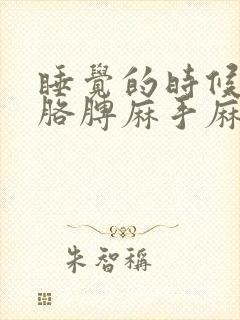 睡覺的時候
胳脾麻手麻
朱智稱